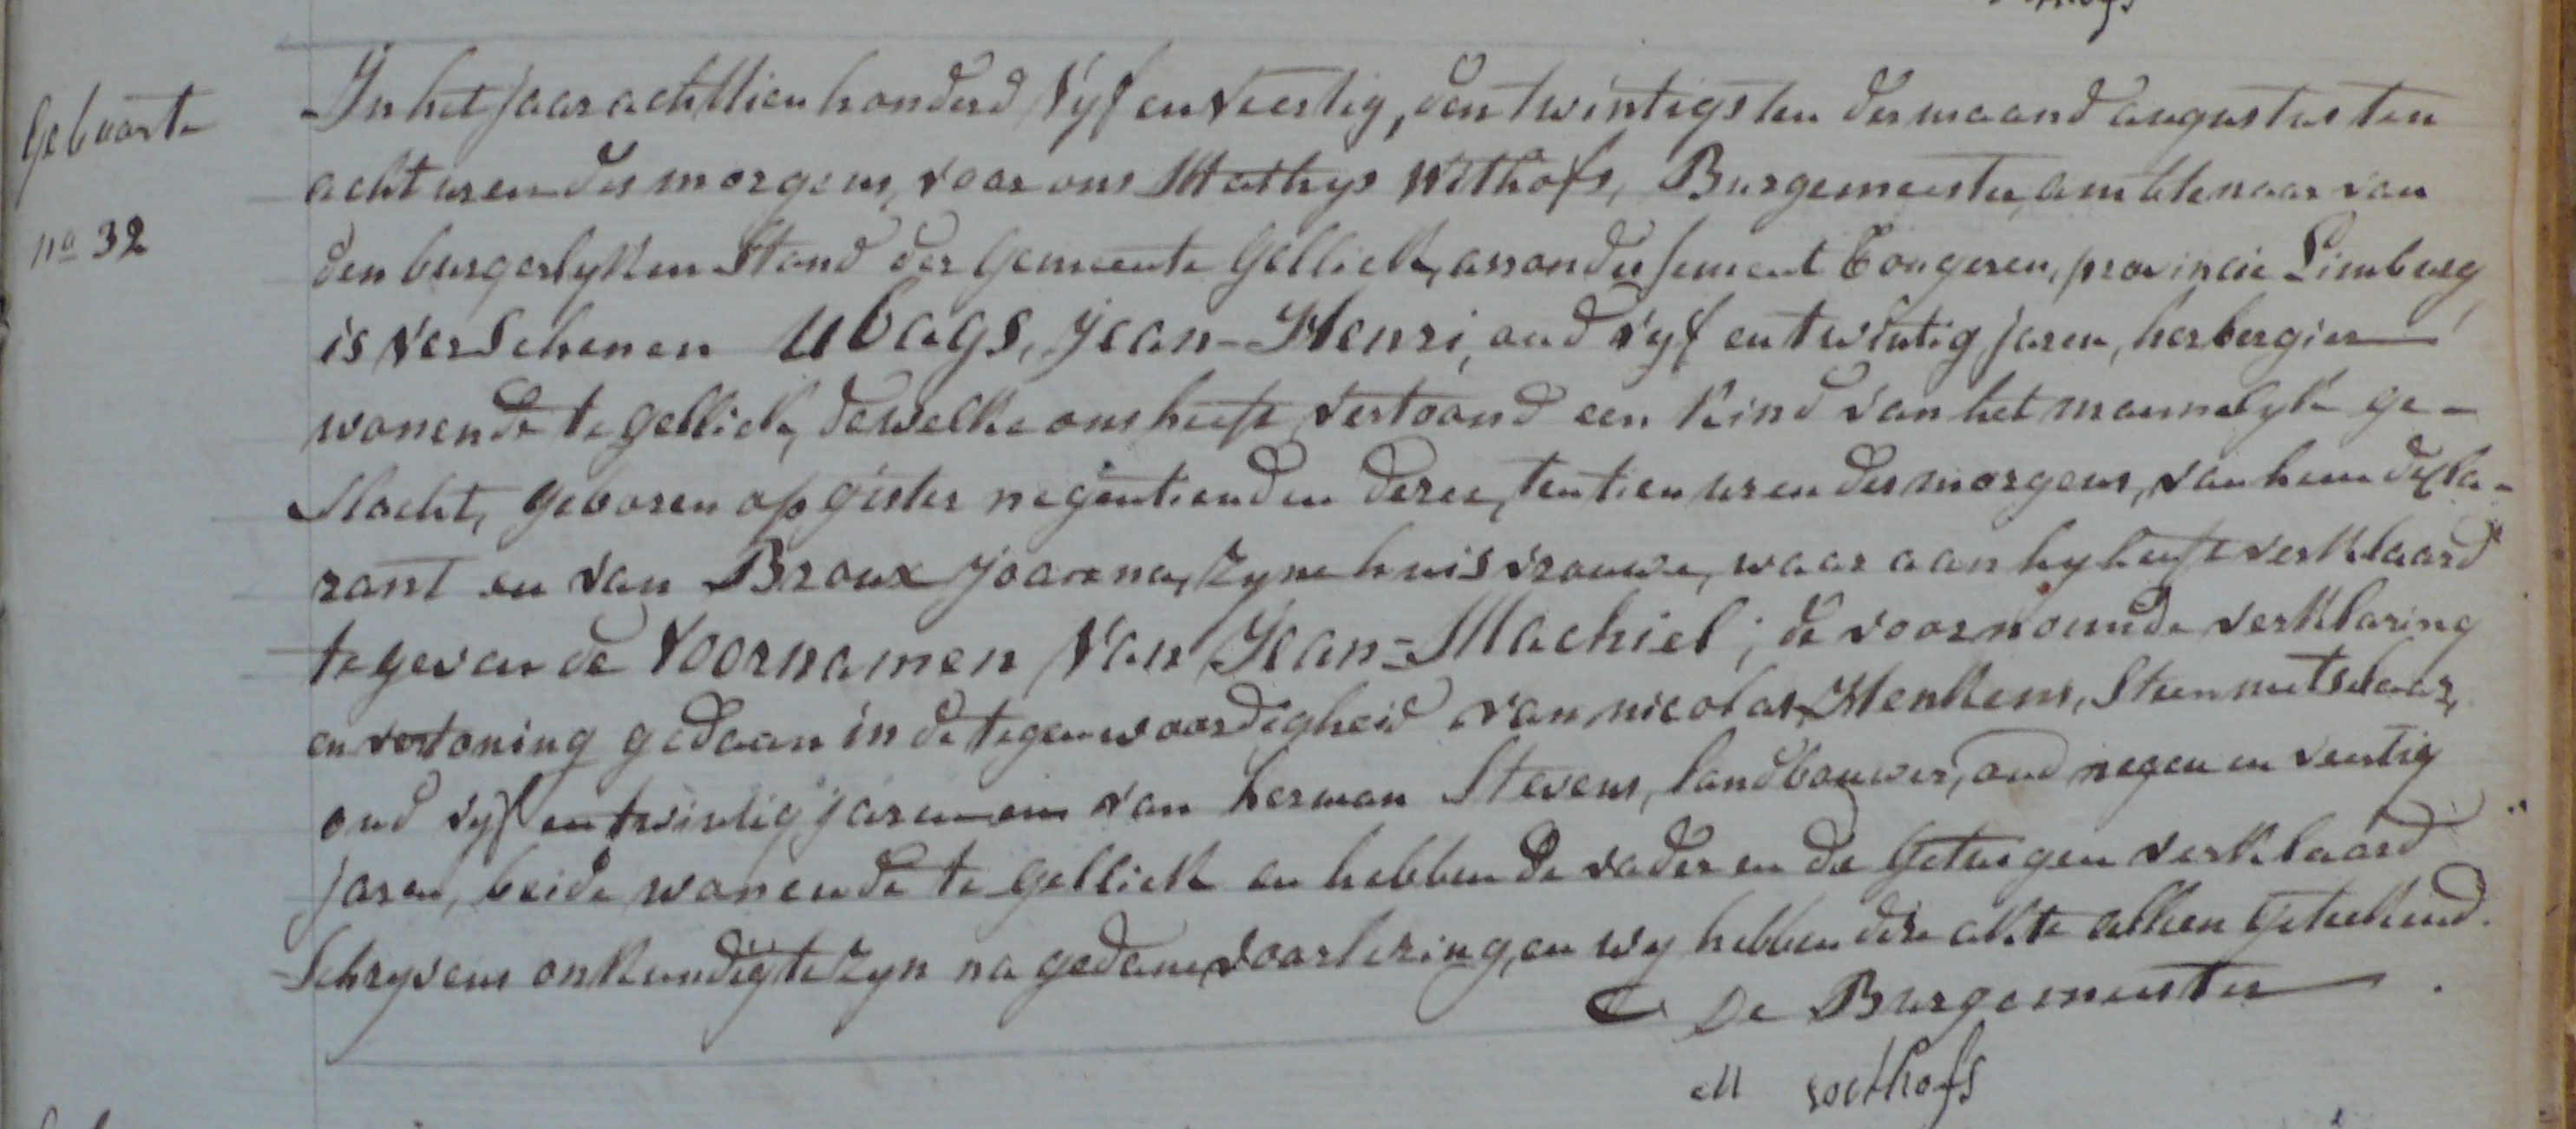 Geboorte
no 32
In het jaar achttien honderd vyf en veertig, den twintigsten der maand augustus ten
acht uren des morgens, voor ons Mathys Withofs, Burgemeester, ambtenaar van
den burgerlyken Stand der Gemeente Gellick, arrondissement Tongeren, provincie Limburg,
is verschenen Ubags, Jean-Henri, oud vyf en twintig jaren, herbergier
wonende te Gellick, dewelke ons heeft vertoond een kind van het mannelyk ge-
slacht, geboren op gister negentienden dezer, ten tien uren des morgens, van hem decla-
rant en van Broux Joanna, zyne huisvrouwe, waar aan hy heeft verklaard
te geven de voornamen van Jean-Machiel; de voornoemde verklaring
en vertoning gedaan in de tegenwoordigheid van nicolas Henkens, Steenmetselaar,
oud vyf en twintig jaren en van herman Stevens, landbouwer, oud negen en veertig
jaren, beide wonende te gellick en hebben de vader en de getuigen verklaard
Schryvens onkundig te zyn na gedane voorlezing, en wy hebben deze akte alleen getekend.
De Burgemeester
M withofs